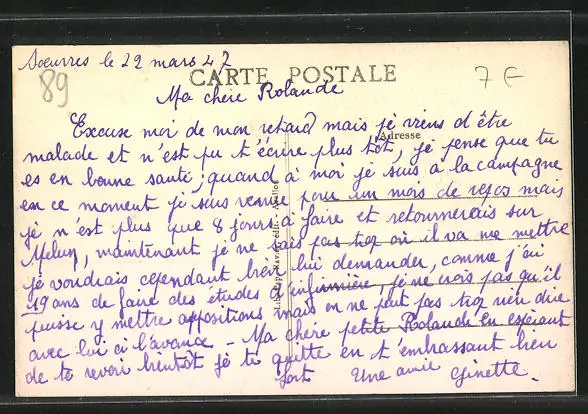 Soeurres le 22 mars 47
89
CARTE POSTALE
7 €
Ma chère Rolande
Excuse moi de mon retard mais je viens d'être
Adresse
malade et n'est pu t'écrire plus tôt, je pense que tu
es en bonne santé; quand à moi je suis à la campagne
en ce moment je suis venue pour un mois de repos mais
je n'est plus que 8 jours à faire et retournerais sur
Melun, maintenant je ne sais pas trop où il va me mettre
je voudrais cependant bien lui demander, comme j'ai
19 ans de faire des études d'infirmière, je ne crois pas qu'il
puisse y mettre appositions mais on ne peut pas trop rien dire
avec lui à l'avance - Ma chère petite Rolande en espérant
de te revoir bientôt je te quitte en t'embrassant bien
fort Une amie Ginette.